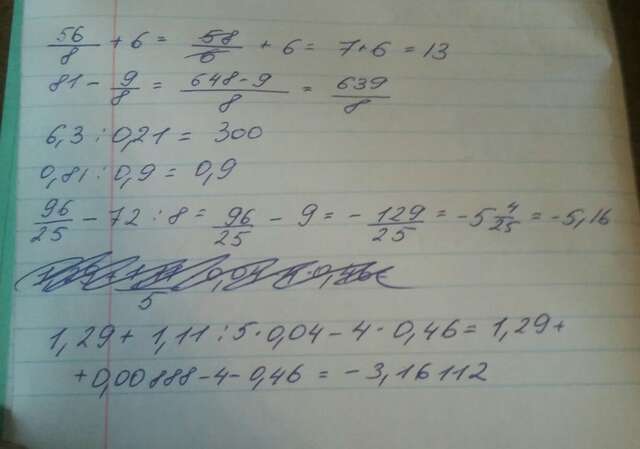 56/8 + 6 = 58/6 + 6 = 7+6 = 13
81 - 9/8 = 648-9/8 = 639/8
6,3 : 0,21 = 300
0,81 : 0,9 = 0,9
96/25 - 72 : 8 = 96/25 - 9 = - 129/25 = -5 4/25 = -5,16
5
1,29 + 1,11 : 5 · 0,04 - 4 · 0,46 = 1,29 +
+ 0,00888 - 4 - 0,46 = - 3,16112